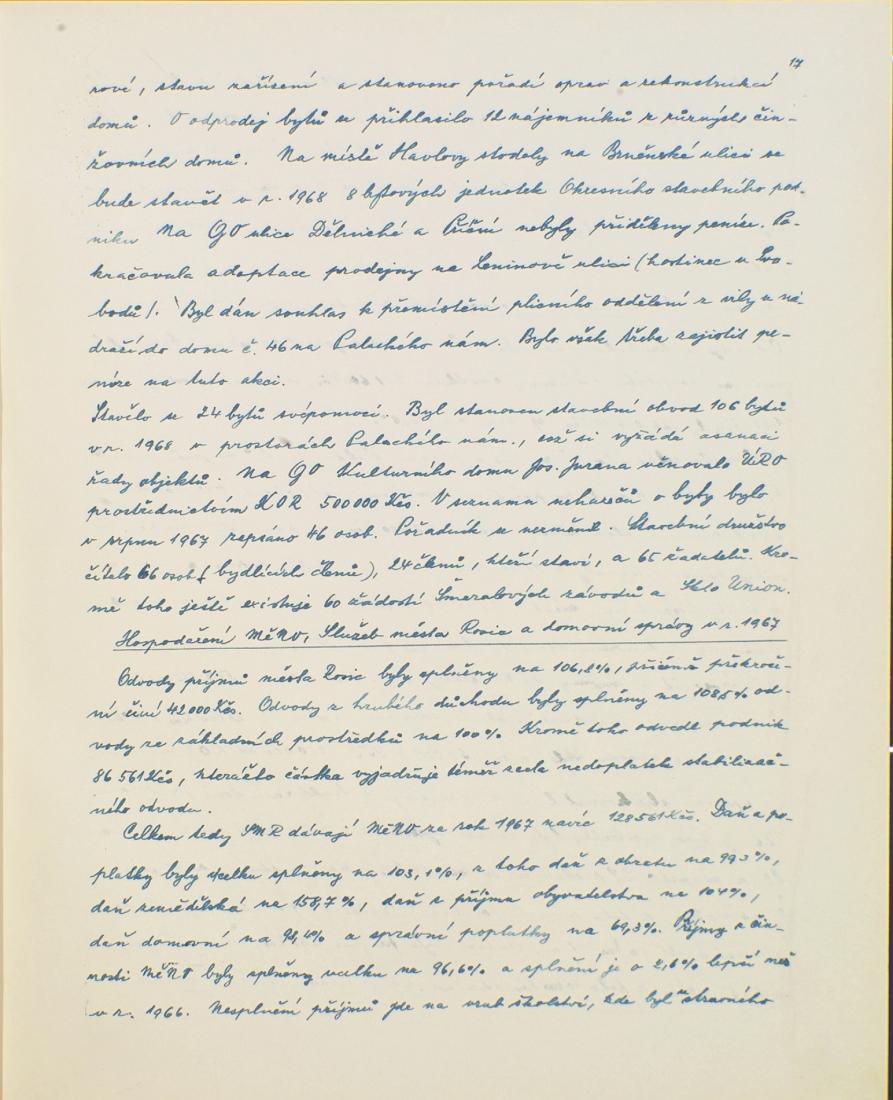 17
rové, stavu zařízení a stanoveno pořadí oprav a rekonstrukcí
domů. O odprodej bytů se přihlásilo 12 nájemníků z různých čin-
žovních domů. Na místě Havlovy stodoly na Brněnské ulici se
bude stavět v r. 1968 8 bytových jednotek Okresního stavebního pod-
niku Na GO ulice Dělnické a Příční nebyly přiděleny peníze. Po-
kračovala adaptace prodejny na Leninově ulici (hostinec u Svo-
bodů). Byl dán souhlas k přemístění plicního oddělení z vily u ná-
draží do domu č. 46 na Palackého nám. Bylo však třeba zajistit pe-
níze na tuto akci.
Stavělo se 24 bytů svépomocí. Byl stanoven stavební obvod 106 bytů
v r. 1968 v prostorách Palackého nám., což si vyžádá asanaci
řady objektů. Na GO Kulturního domu Jos. Jurana věnovala ÚRO
prostřednictvím KOR 500 000 Kčs. V seznamu uchazečů o byty bylo
v srpnu 1967 zapsáno 46 osob. Pořadník se nezměnil. Stavební družstvo
čítalo 66 osob (bydlících členů), 24 členů, kteří staví, a 65 žadatelů. Kro-
mě toho ještě existuje 60 žádostí Šmeralových závodů a Sklo Union.
Hospodaření MěNV, Služeb města Rosic a domovní správy v r. 1967
Odvody příjmů města Rosic byly splněny na 106,2%, přičemž překroče-
ní činí 42 000 Kčs. Odvody z hrubého důchodu byly splněny na 108,5% od-
vody ze základních prostředků na 100% Kromě toho odvedl podnik
86 561 Kčs, kteráčto částka vyjadřuje téměř zcela nedoplatek stabilizač-
ního odvodu.
Celkem tedy SMR dávají MěNV za rok 1967 navíc 128 561 Kčs. Daň a po-
platky byly celku splněny na 103,1%, z toho daň z obratu na 99,3%,
daň zemědělská na 158,7%, daň z příjmu obyvatelstva na 104%,
daň domovní na 98,4% a správní poplatky na 69,3%. Příjmy z čin-
nosti MěNV byly splněny vcelku na 96,6% a splnění je o 2,6% lepší než
v r. 1966. Nesplnění příjmů jde na vrub školství, kde byl stravného